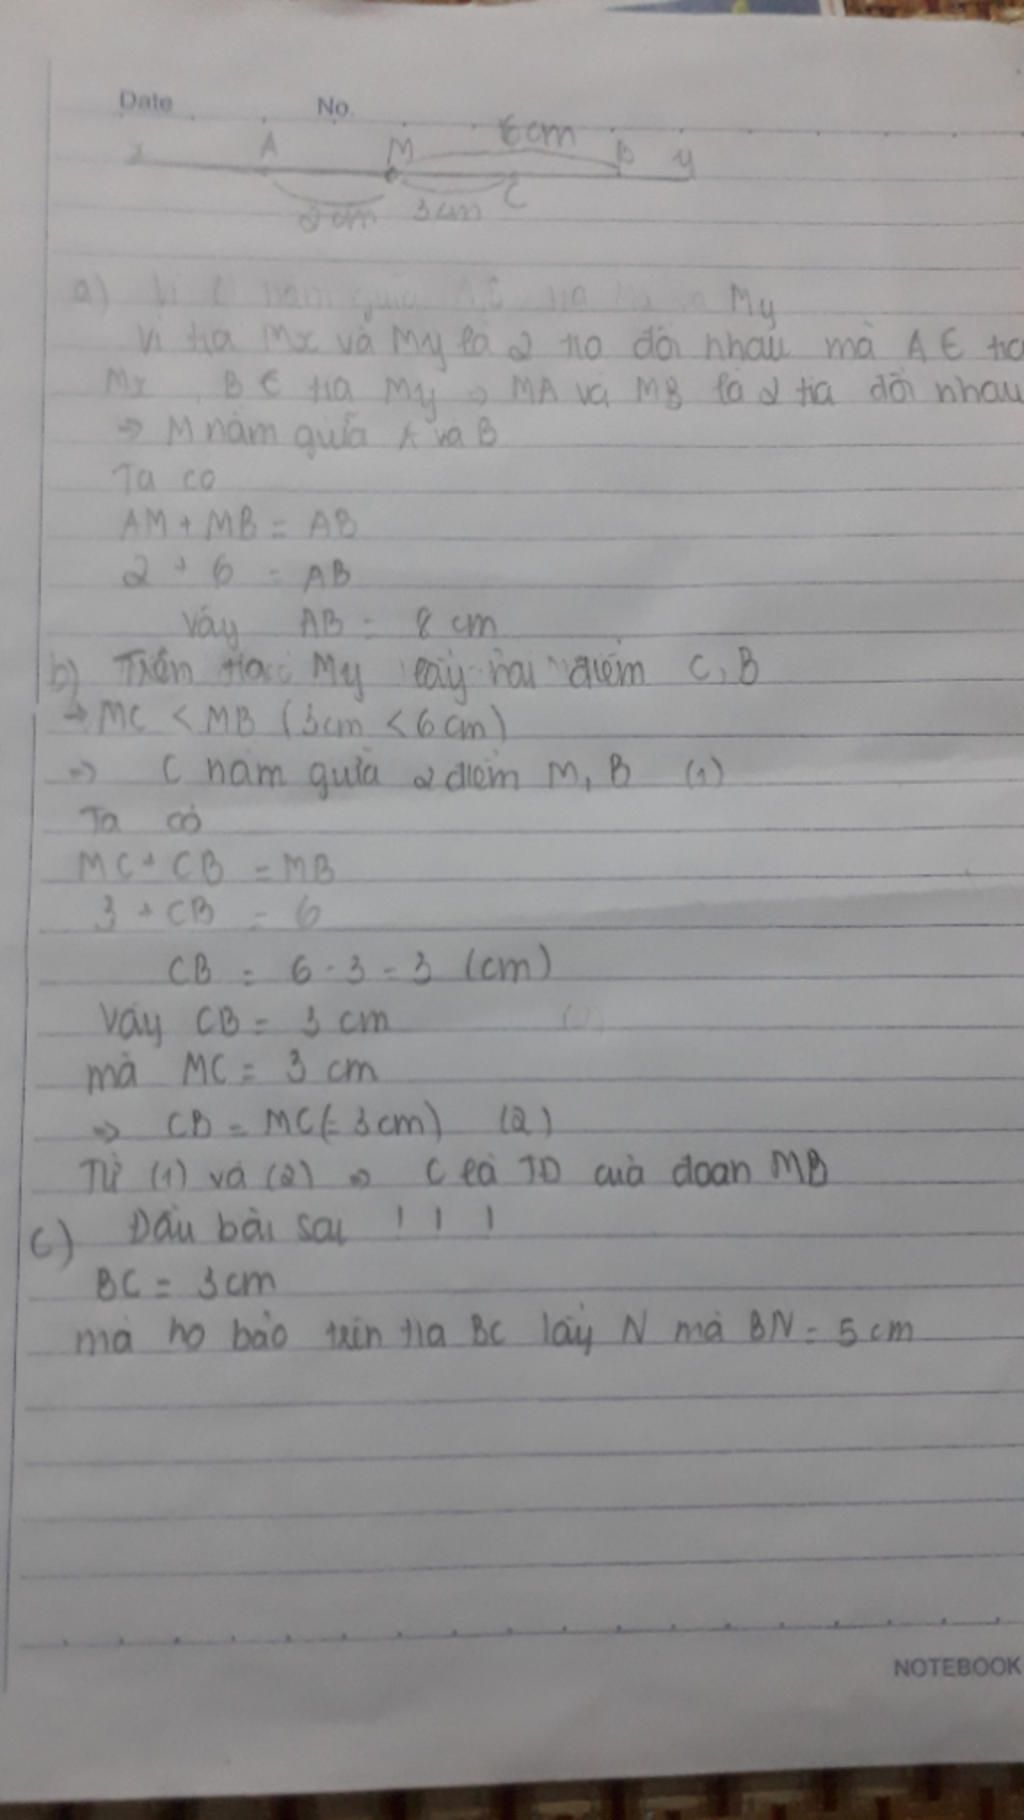 Date No.
x A M 6cm B y
2cm 3cm C
a) Vì nằm giữa My
Vì tia Mx và My là 2 tia đối nhau mà A ∈ tia
Mx, B ∈ tia My => MA và MB là 2 tia đối nhau
=> M nằm giữa A và B
Ta có
AM + MB = AB
2 + 6 = AB
Vậy AB = 8 cm
b) Trên tia My lấy hai điểm C, B
→ MC < MB (3cm < 6cm)
=> C nằm giữa 2 điểm M, B (1)
Ta có
MC + CB = MB
3 + CB = 6
CB = 6 - 3 = 3 (cm)
Vậy CB = 3 cm
mà MC = 3 cm
=> CB = MC (= 3cm) (2)
Từ (1) và (2) => C là TD của đoạn MB
c) Đầu bài sai ! ! !
BC = 3cm
mà họ bảo trên tia BC lấy N mà BN = 5 cm
NOTEBOOK